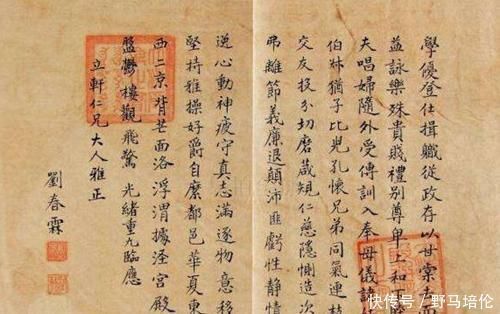 學優登仕攝職從政存以甘棠去
益詠樂殊貴賤禮別尊卑上和下
夫唱婦隨外受傅訓入奉母儀諸
伯叔猶子比兒孔懷兄弟同氣連枝
交友投分切磨箴規仁慈隱惻造次
弗離節義廉退顛沛匪虧性靜情
逸心動神疲守真志滿逐物意移
堅持雅操好爵自縻都邑華夏東
西二京背芒面洛浮渭據涇宮殿
盤鬱樓觀飛驚 光緒重九臨應
立軒仁兄大人雅正
劉春霖
快传号/野马培伦